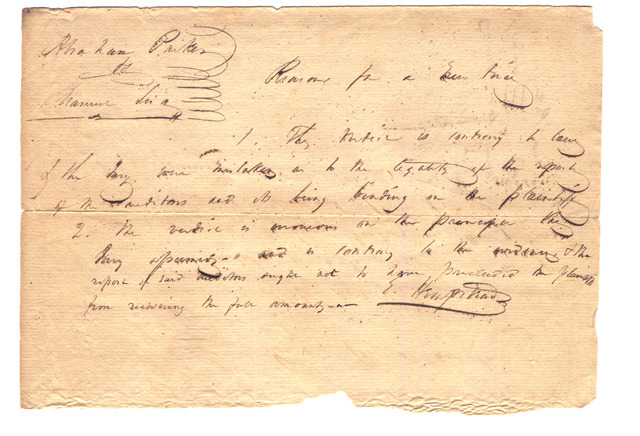 Abraham Parker
vs
Manuel Lisa
Reasons for a New trial
1. The verdict is contrary to law
& the Jury were mistaken as to the legality of the report
of the auditors and its being binding on the plaintiff
2. The verdict is erroneous on the principle the
Jury and is contrary to the evidence & the
report of said auditors ought not to have precluded the plaintiff
from receiving the full amount
E. Hempstead